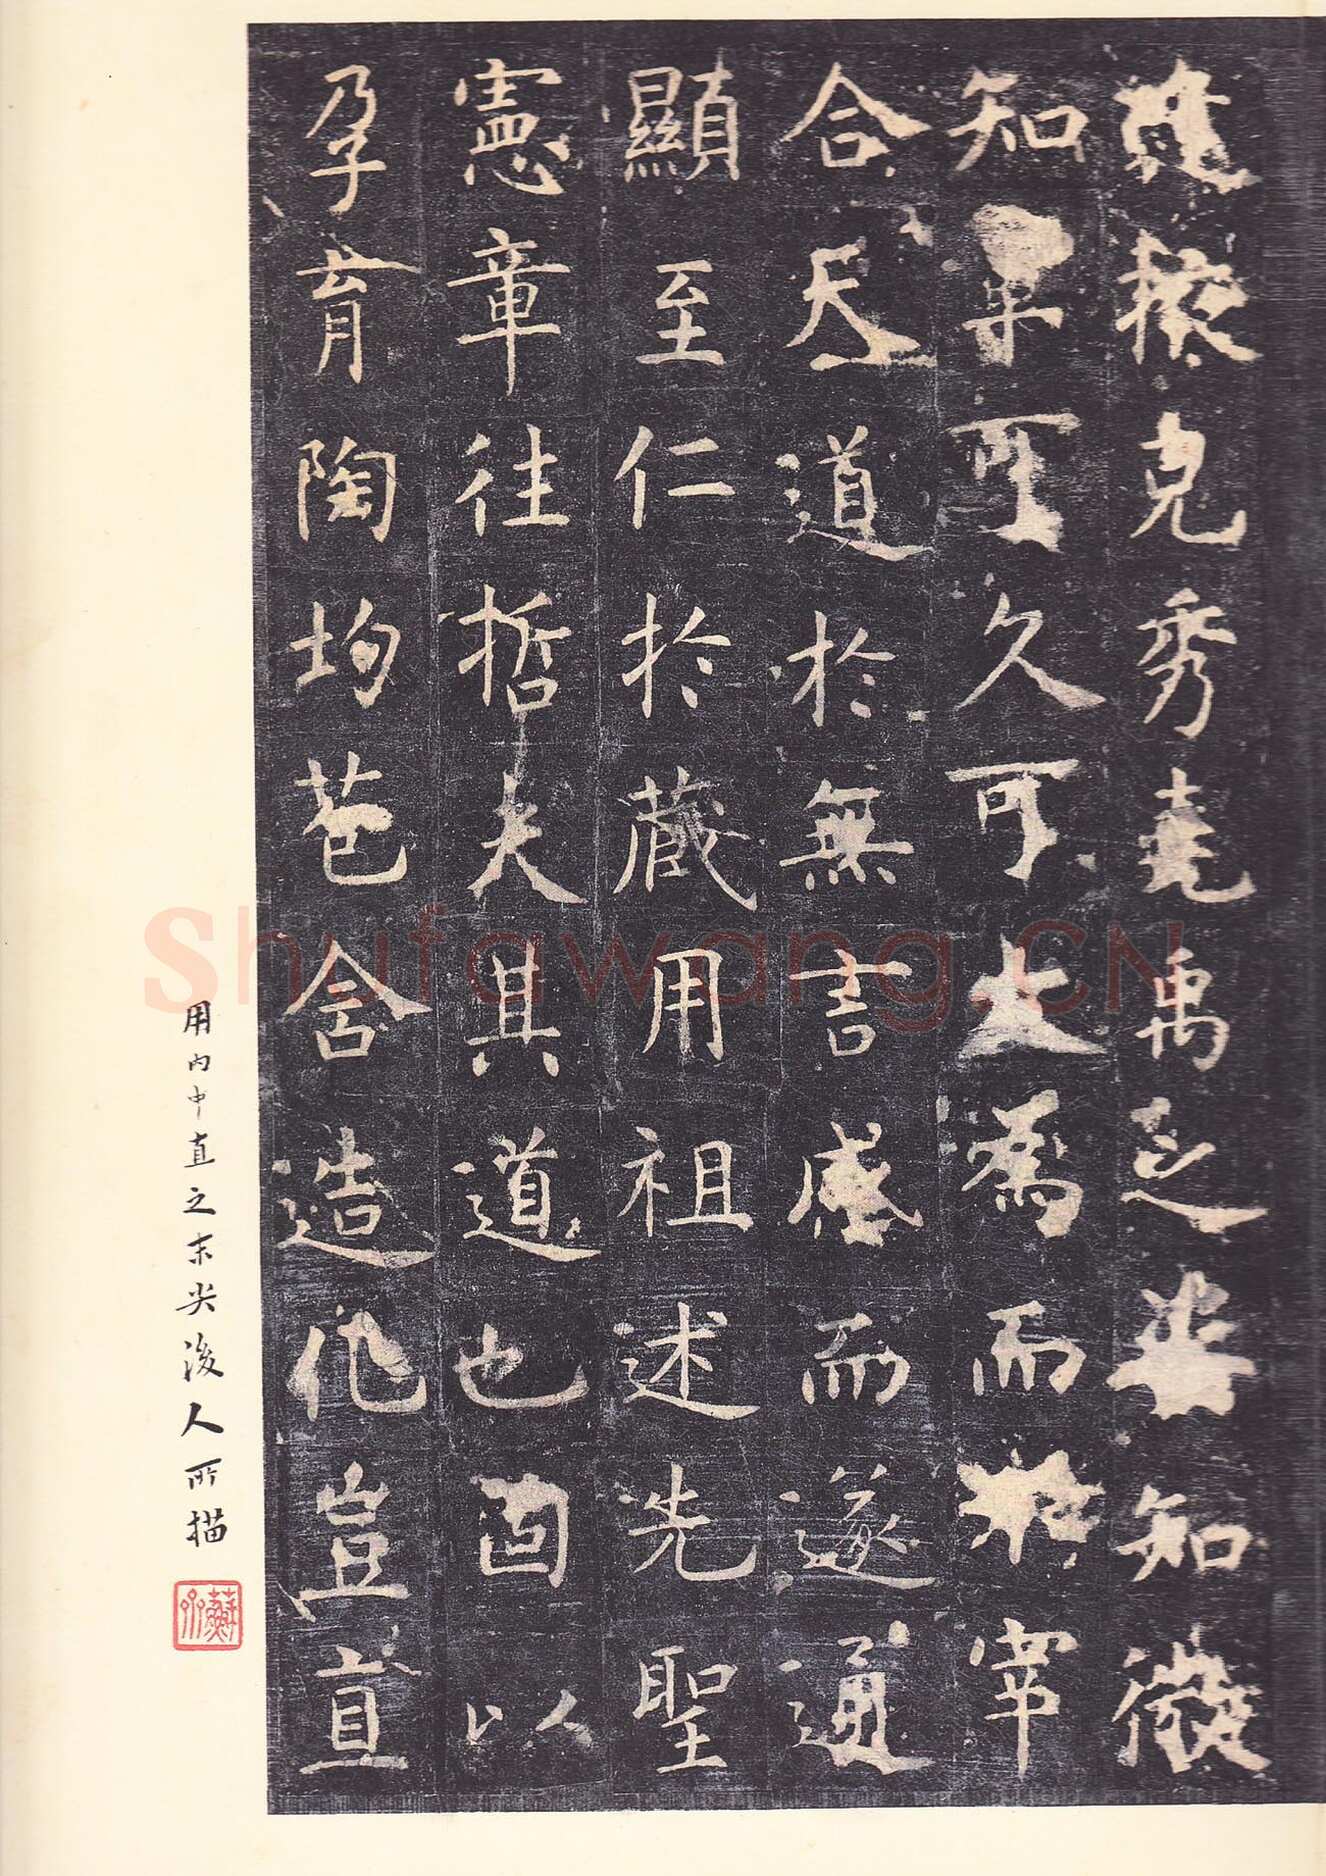 逢掖克秀堯禹之姿知微
知章可久可大為而不宰
合天道於無言感而遂通
顯至仁於藏用祖述先聖
憲章往哲夫其道也固以
孕育陶均苞含造化豈直
用內中直之末尖後人所描
Shufawang.CN